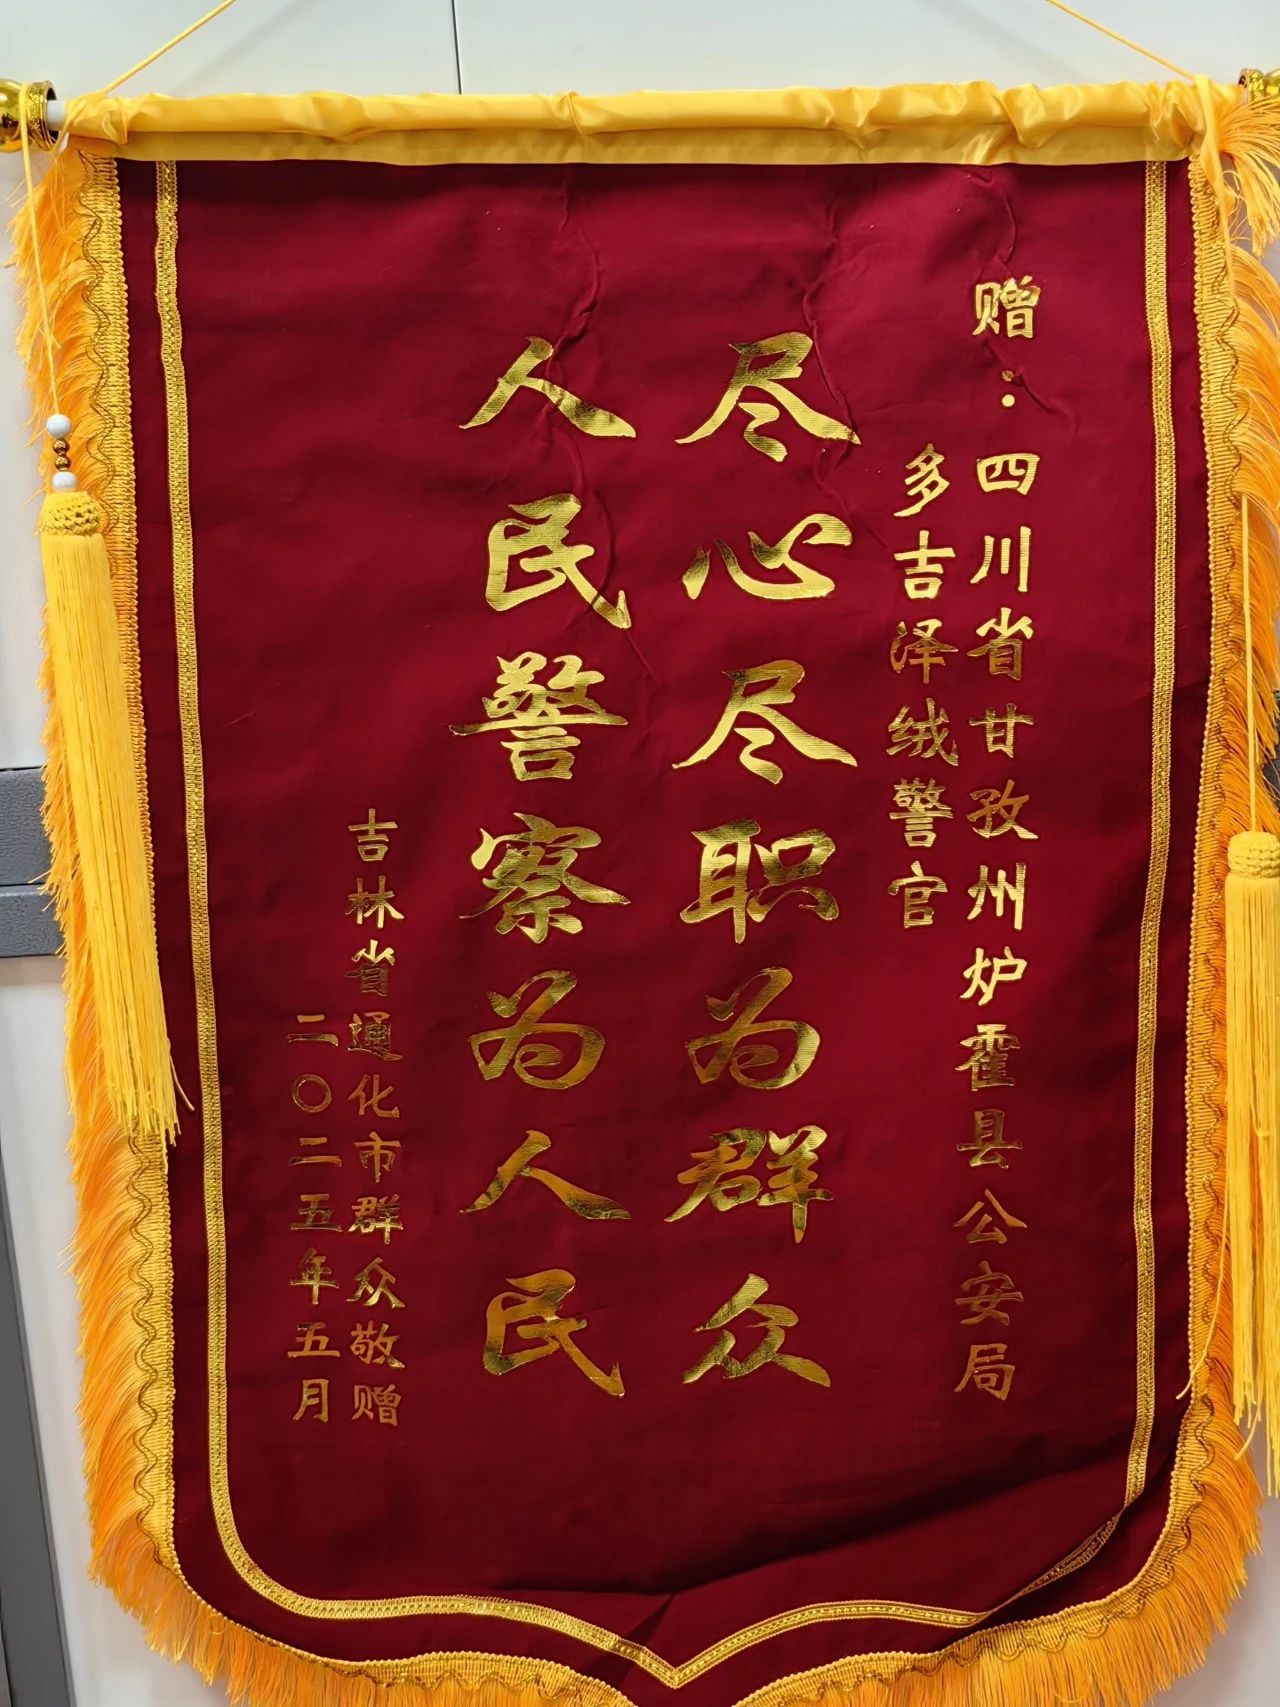 赠：四川省甘孜州炉霍县公安局
多吉泽绒警官
尽心尽职为群众
人民警察为人民
吉林省通化市群众敬赠
二〇二五年五月